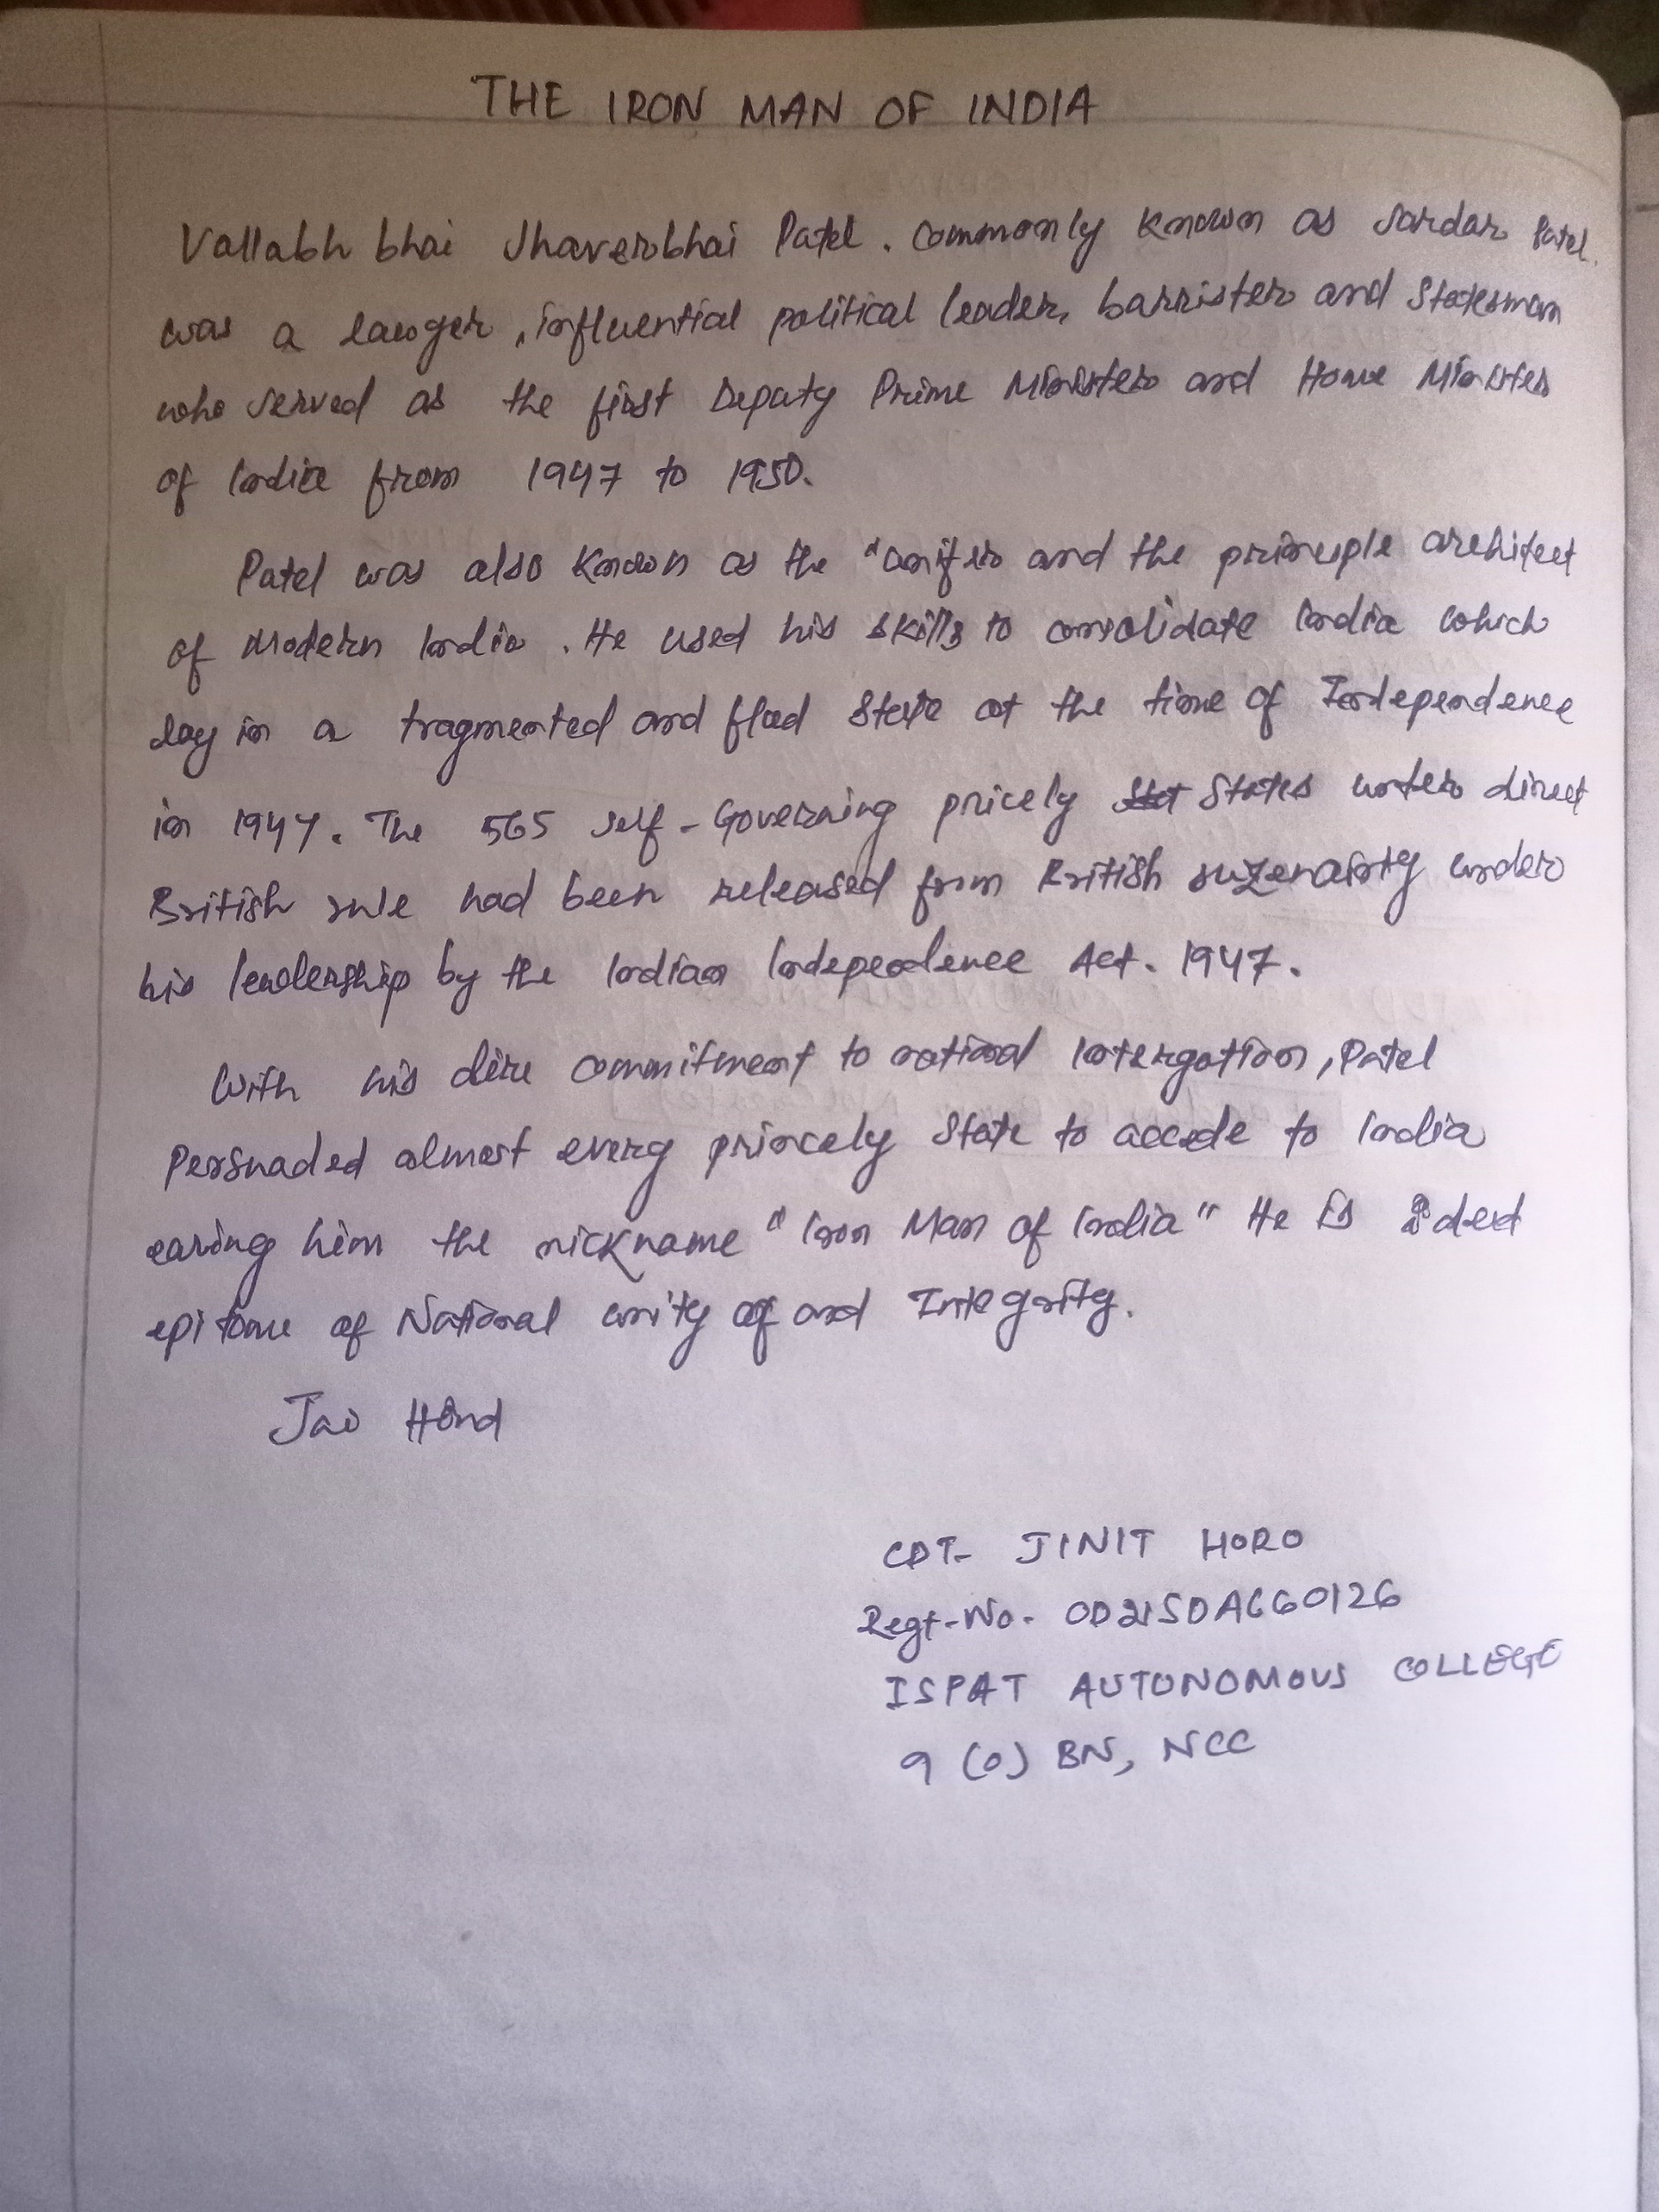 THE IRON MAN OF INDIA
Vallabh bhai Jhaverbhai Patel. commonly known as Sardar Patel.
was a lawyer, influential political leader, barrister and Statesman
who served as the first Deputy Prime Minister and Home Minister
of India from 1947 to 1950.
Patel was also known as the "unifier and the principle architect
of Modern India. He used his skills to consolidate India which
lay in a fragmented and flued State at the time of Independence
in 1947. The 565 self-Governing pricely States under direct
British rule had been released from British suzerainty under
his leadership by the Indian Independence Act. 1947.
With his dire commitment to national Intergation, Patel
Persuaded almost every princely State to accede to India
earing him the nickname "Iron Man of India" He is ideed
epitome of National unity of and Integrity.
Jai Hind
CDT- JINIT HORO
Regt-No. OD21SDA660126
ISPAT AUTONOMOUS COLLEGE
9 (O) BN, NCC